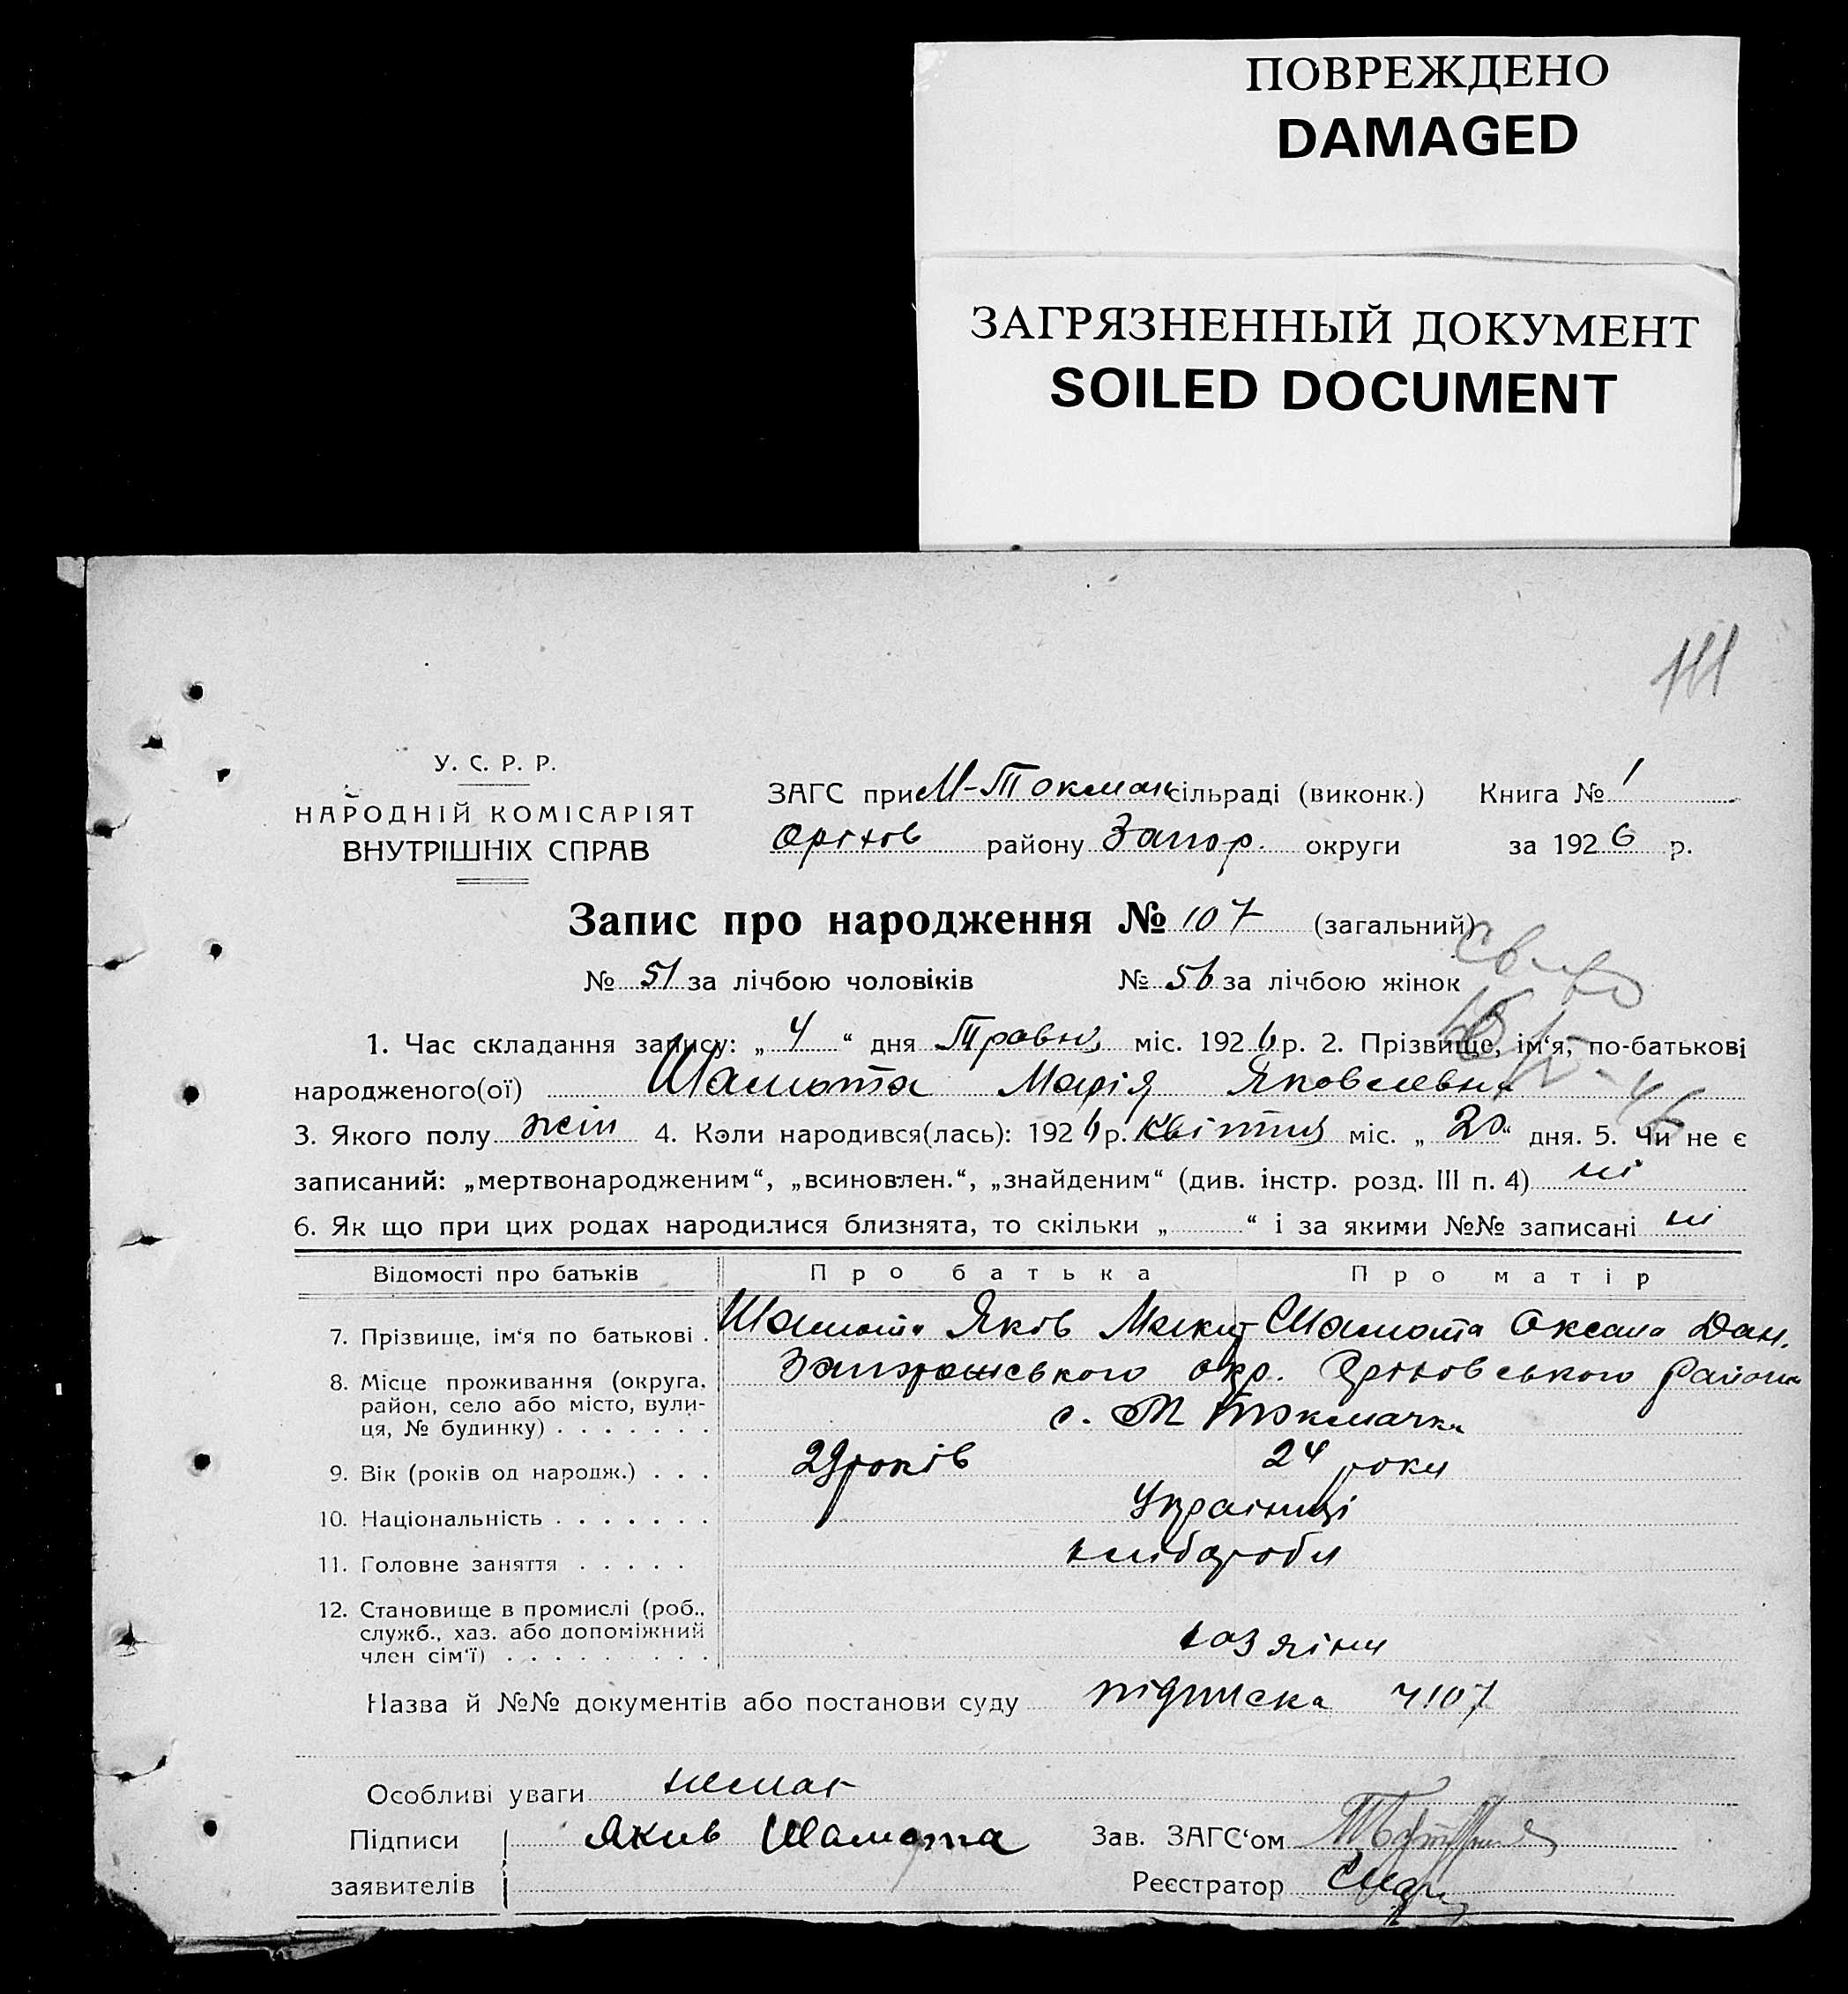 ПОВРЕЖДЕНО
DAMAGED
ЗАГРЯЗНЕННЫЙ ДОКУМЕНТ
SOILED DOCUMENT
111
У. С. Р. Р.
НАРОДНІЙ КОМІСАРІЯТ
ВНУТРІШНІХ СПРАВ
ЗАГС при М-Токмач сільраді (виконк.) Книга № 1
Оріхов району Запор. округи за 1926 р.
Запис про народження № 107 (загальний)
№ 51 за лічбою чоловіків № 56 за лічбою жінок
1. Час складання запису: „ 4 “ дня Травня міс. 1926 р. 2. Прізвище, ім'я, по-батькові
народженого(ої) Шамота Марія Яковлевна
3. Якого полу жін 4. Коли народився(лась): 1926 р. Квітня міс. „ 20 “ дня. 5. Чи не є
записаний: „мертвонародженим“, „всиновлен.“, „знайденим“ (див. інстр. розд. III п. 4) ні
6. Як що при цих родах народилися близнята, то скільки „ “ і за якими №№ записані ні
Відомості про батьків Про батька Про матір
7. Прізвище, ім‘я по батькові . Шамота Яків Микит Шамота Оксана Дан.
8. Місце проживання (округа, район, село або місто, вули-ця, № будинку) . . . . . . . Запорожського окр. Оріховського району
с. М Токмачка
9. Вік (років од народж.) . . . 29 років 24 роки
10. Національність . . . . . . . Українці
11. Головне заняття . . . . . хлібороби
12. Становище в промислі (роб.,
служб., хаз. або допоміжний
член сім‘ї) . . . . . . . . . хазяїни
Назва й №№ документів або постанови суду підписка ч107
Особливі уваги немає
Підписи Якив Шамота Зав. ЗАГС‘ом
заявителів Реєстратор